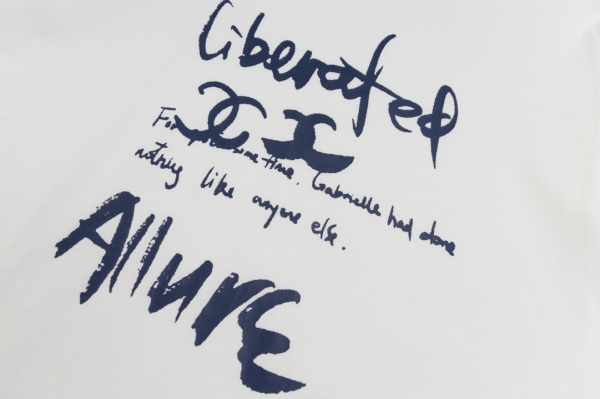 Liberated
For some time, Gabrielle had done
nothing like anyone else.
Allure